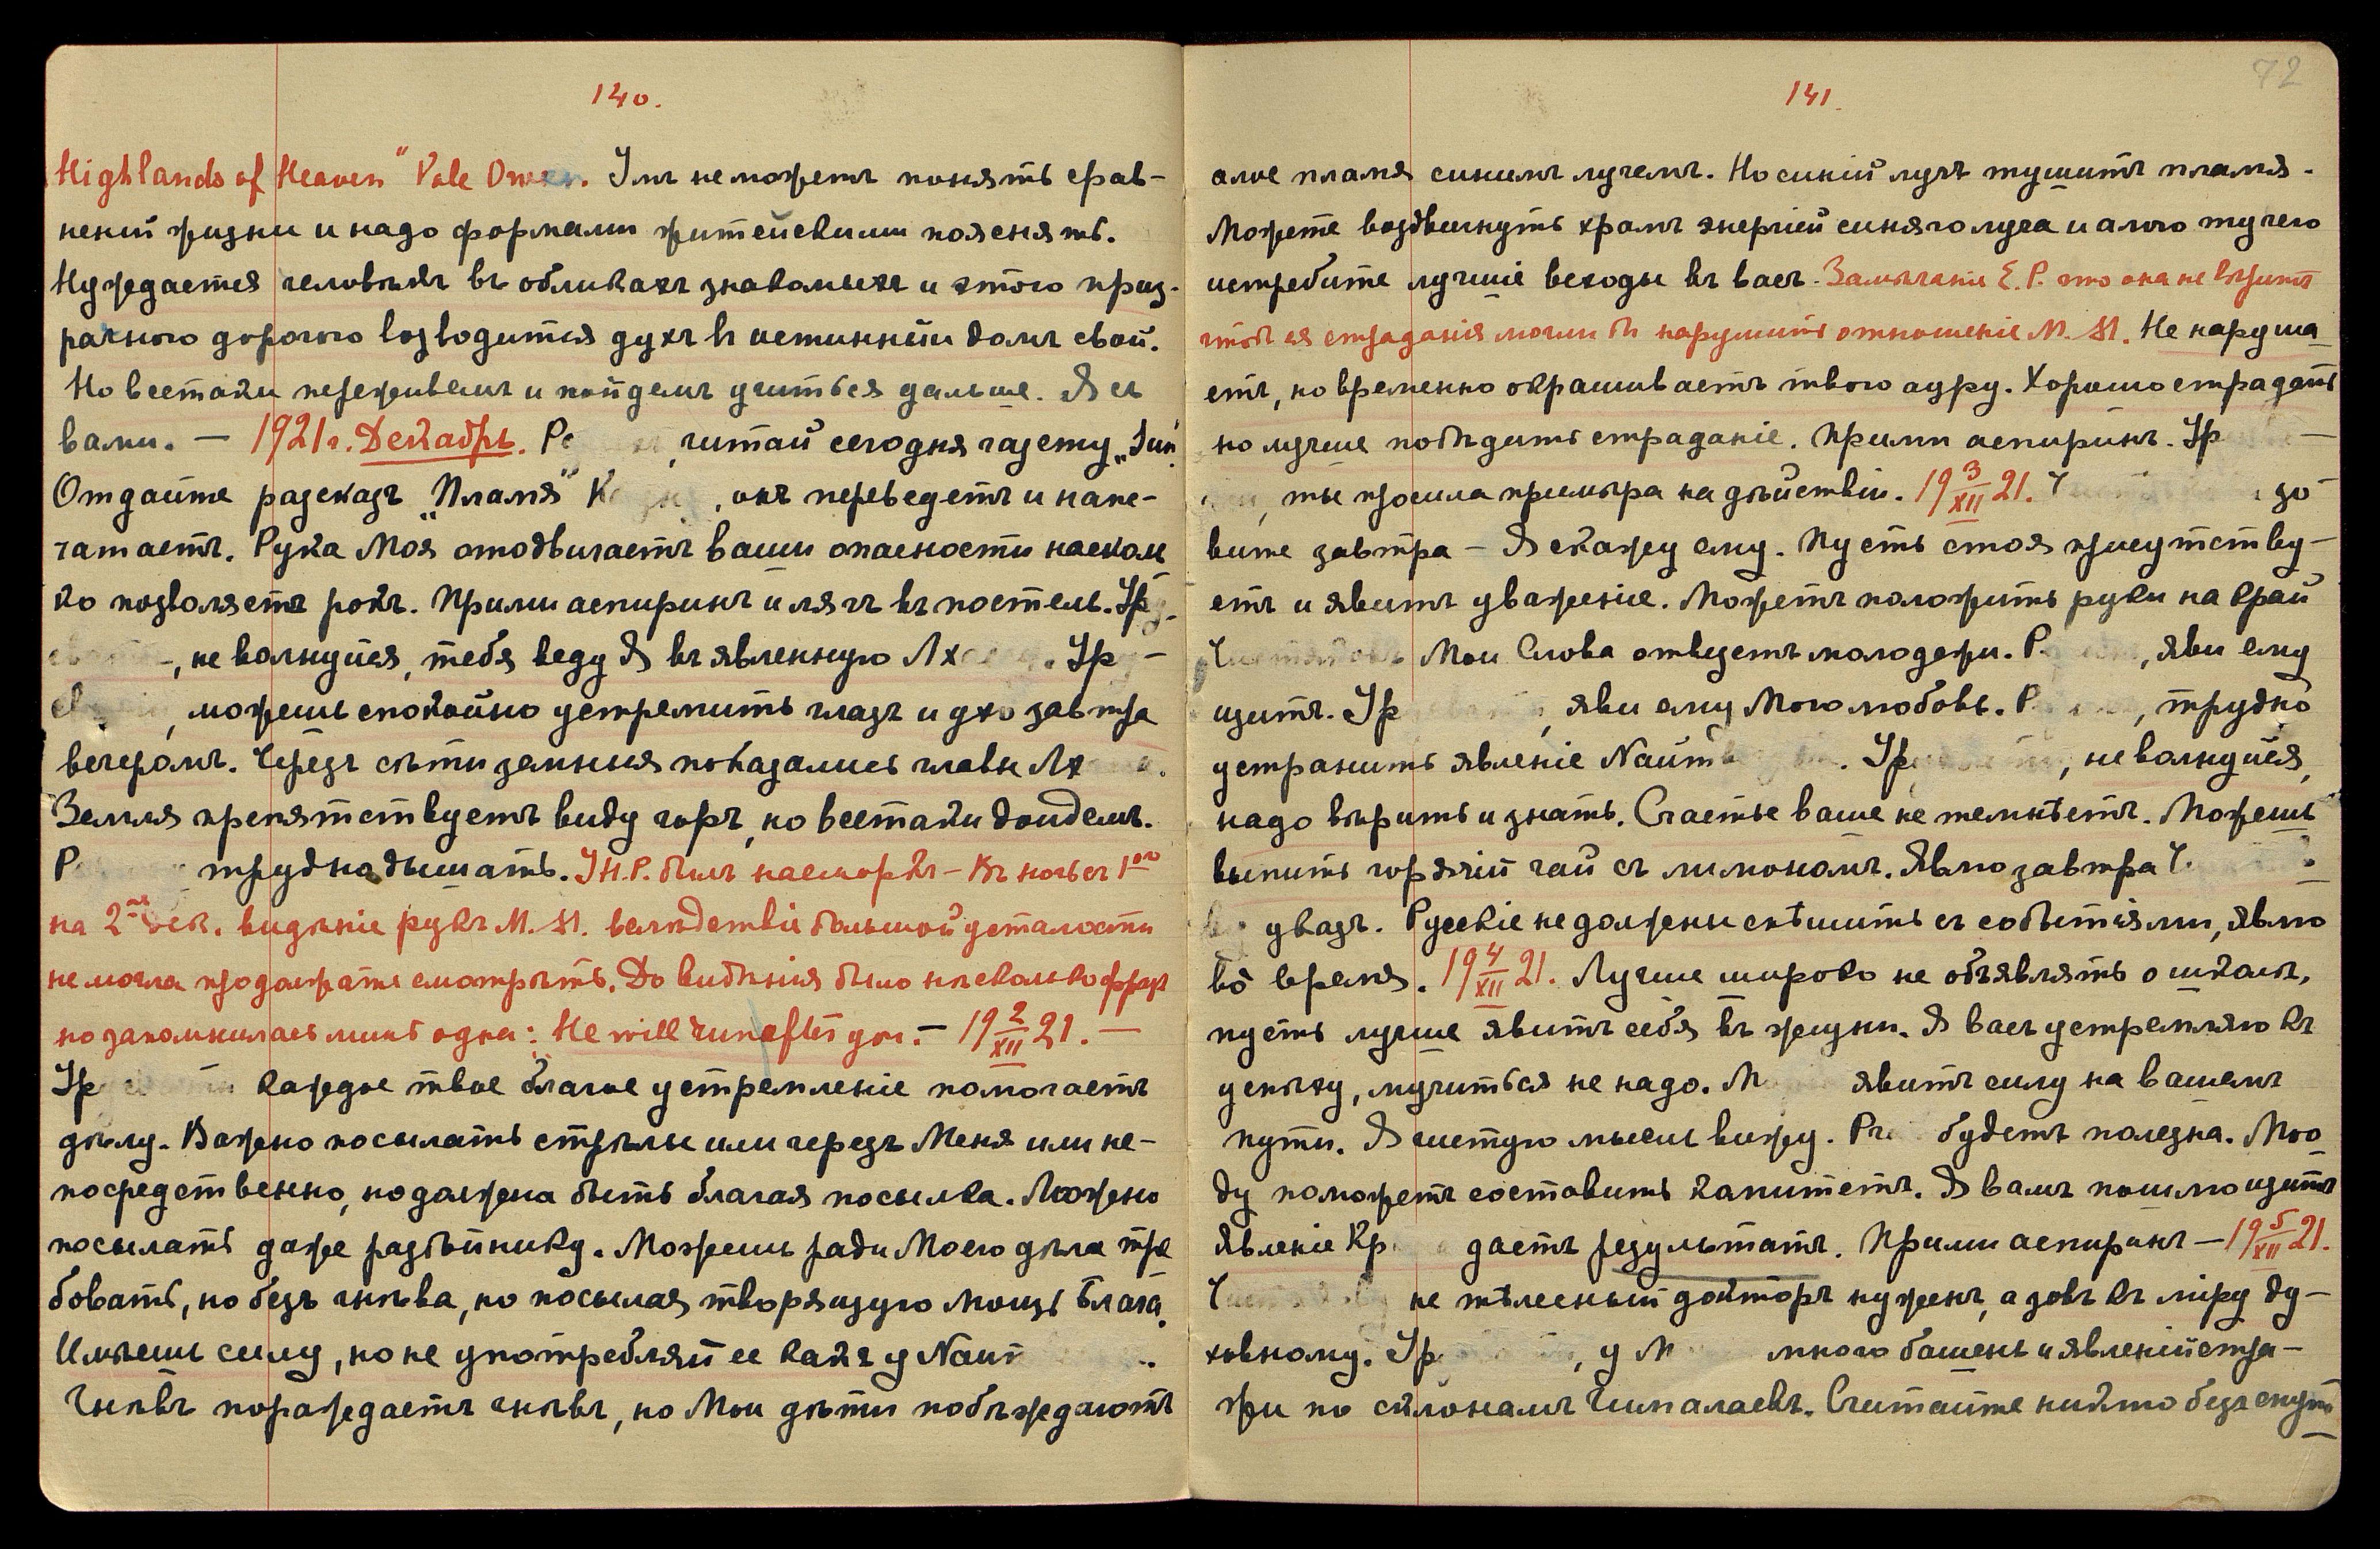 140.
Highlands of Heaven" Vale Owen. Умъ не можетъ понять срав-
неній жизни и надо формами житейскими пояснять.
Нуждается человѣкъ въ обликахъ знакомыхъ и этого приз-
рачного дорогою возводится духъ въ истинный домъ свой.
Но всетаки переживемъ и пойдемъ учиться дальше. Я съ
вами. — 1921 г. Декабрь. Р читай сегодня газету
Отдайте разсказъ "Пламя" К , онъ переведетъ и напе-
чатаетъ. Рука Моя отодвигаетъ ваши опасности насколь
ко позволяетъ рокъ. Прими аспиринъ и лягъ въ постель. Ур
, не волнуйся, тебя веду Я въ явленную Лх . Ур —
, можешь спокойно устремить глазъ и ухо завтра
вечеромъ. Черезъ сѣти земныя показались главы Лх .
Земля препятствуетъ виду горъ, но всетаки дойдемъ.
Р трудно дышать. У Н.Р. былъ насморкъ — Въ ночь съ 1ого
на 2ое дек. видѣніе рукъ М. М. вслѣдствіе большой усталости
не могла продолжать смотрѣть. До видѣнія было нѣсколько фразъ
но запомнилась лишь одна: He will run after you. — 19 2/XII 21. —
Ур каждое твое благое устремленіе помогаетъ
дѣлу. Важно посылать стрѣлы или черезъ Меня или не-
посредственно, но должна быть благая посылка. Можно
посылать даже разбойнику. Можешь ради Моего дѣла тре
бовать, но безъ гнѣва, но посылая творящую мощь блага.
Имѣешь силу, но не употребляй ее какъ у Naut
Гнѣвъ порождаетъ гнѣвъ, но Мои дѣти побѣждаютъ
72
141.
алое пламя синимъ лучемъ. Но синій лучъ тушитъ пламя.
Можете воздвигнуть храмъ энергіей синяго луча и алою тучею
истребите лучшіе всходы въ васъ. Замѣчаніе Е. Р. что она не вѣритъ
чтобъ ея страданія могли бы нарушить отношеніе М. М. Не наруша
етъ, но временно окрашиваетъ твою ауру. Хорошо страдать
но лучше побѣдить страданіе. Прими аспиринъ. Ур —
, ты просила примѣра на дѣйствіи. 19 3/XII 21. Ч зо
вите завтра — Я скажу ему. Пусть стоя присутству-
етъ и явитъ уваженіе. Можетъ положить руки на край
Ч Мои Слова отвезетъ молодежи. Р , яви ему
щитъ. Ур , яви ему Мою любовь. Р , трудно
устранить явленіе Naut . Ур , не волнуйся,
надо вѣрить и знать. Счастье ваше не темнѣетъ. Можешь
выпить горячій чай съ лимономъ. Явлю завтра Ч
указъ. Русскіе не должны спѣшить съ событіями, явлю
во время. 19 4/XII 21. Лучше широко не объявлять о школѣ,
пусть лучше явитъ себя въ жизни. Я васъ устремляю къ
успѣху, мучиться не надо. М явитъ силу на вашемъ
пути. Я чистую мысль вижу. Р будетъ полезна. Моо
ду поможетъ составить комитетъ. Я вамъ пошлю щитъ
Явленіе Кр дастъ результатъ. Прими аспиринъ — 19 5/XII 21.
Ч не тѣлесный докторъ нуженъ, а зовъ къ міру ду-
ховному. Ур , у М много башенъ и явленій стра-
жи по склонамъ Гималаевъ. Считайте никто безъ спут